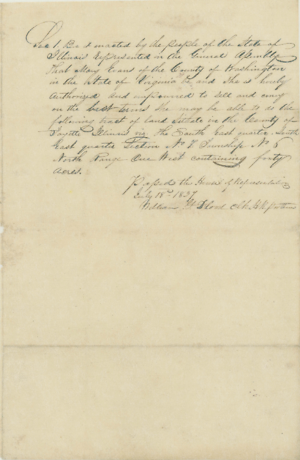 Sec 1 Be it enacted by the people of the State of
Illinois represented in the General Assembly
That Mary Evans of the County of Washington
in the State of Virginia be and she is hereby
Authorized and empowered to sell and
on the best terms she may be able to do the
following tract of land situate in the County of
Fayette Illinois viz The South East quarter South
East quarter Section No 7 Township No 5
North Range One West containing forty
acres.
Passed the House of Representatives
July 18th 1837
William